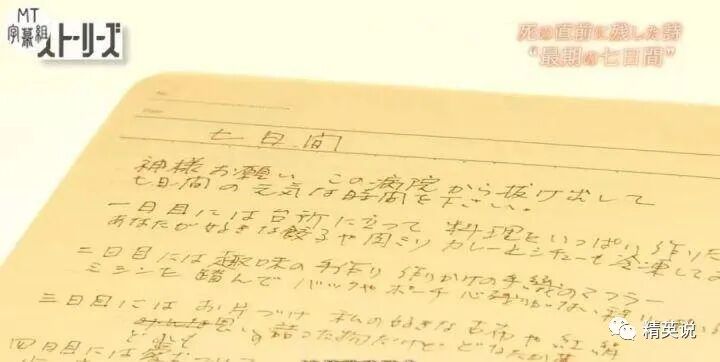 MT
字幕組
ストーリーズ
死の直前に残した詩
“最期の七日間”
七日間
神様お願い この病院から抜け出して
七日間の元気な時間を下さい。
一日目には台所に立って 料理をいっぱい作りた
あなたが好きな餃子や肉ミソ カレーとシチューも冷凍して
二日目には趣味の手作り 作りかけの手織のマフラー
ミシンも踏んで バックやポーチ 心残りがない程
三日目にはお片づけ 私の好きな古布や紅絹
思い詰った物だけど、どなたか
四日目には
精英说